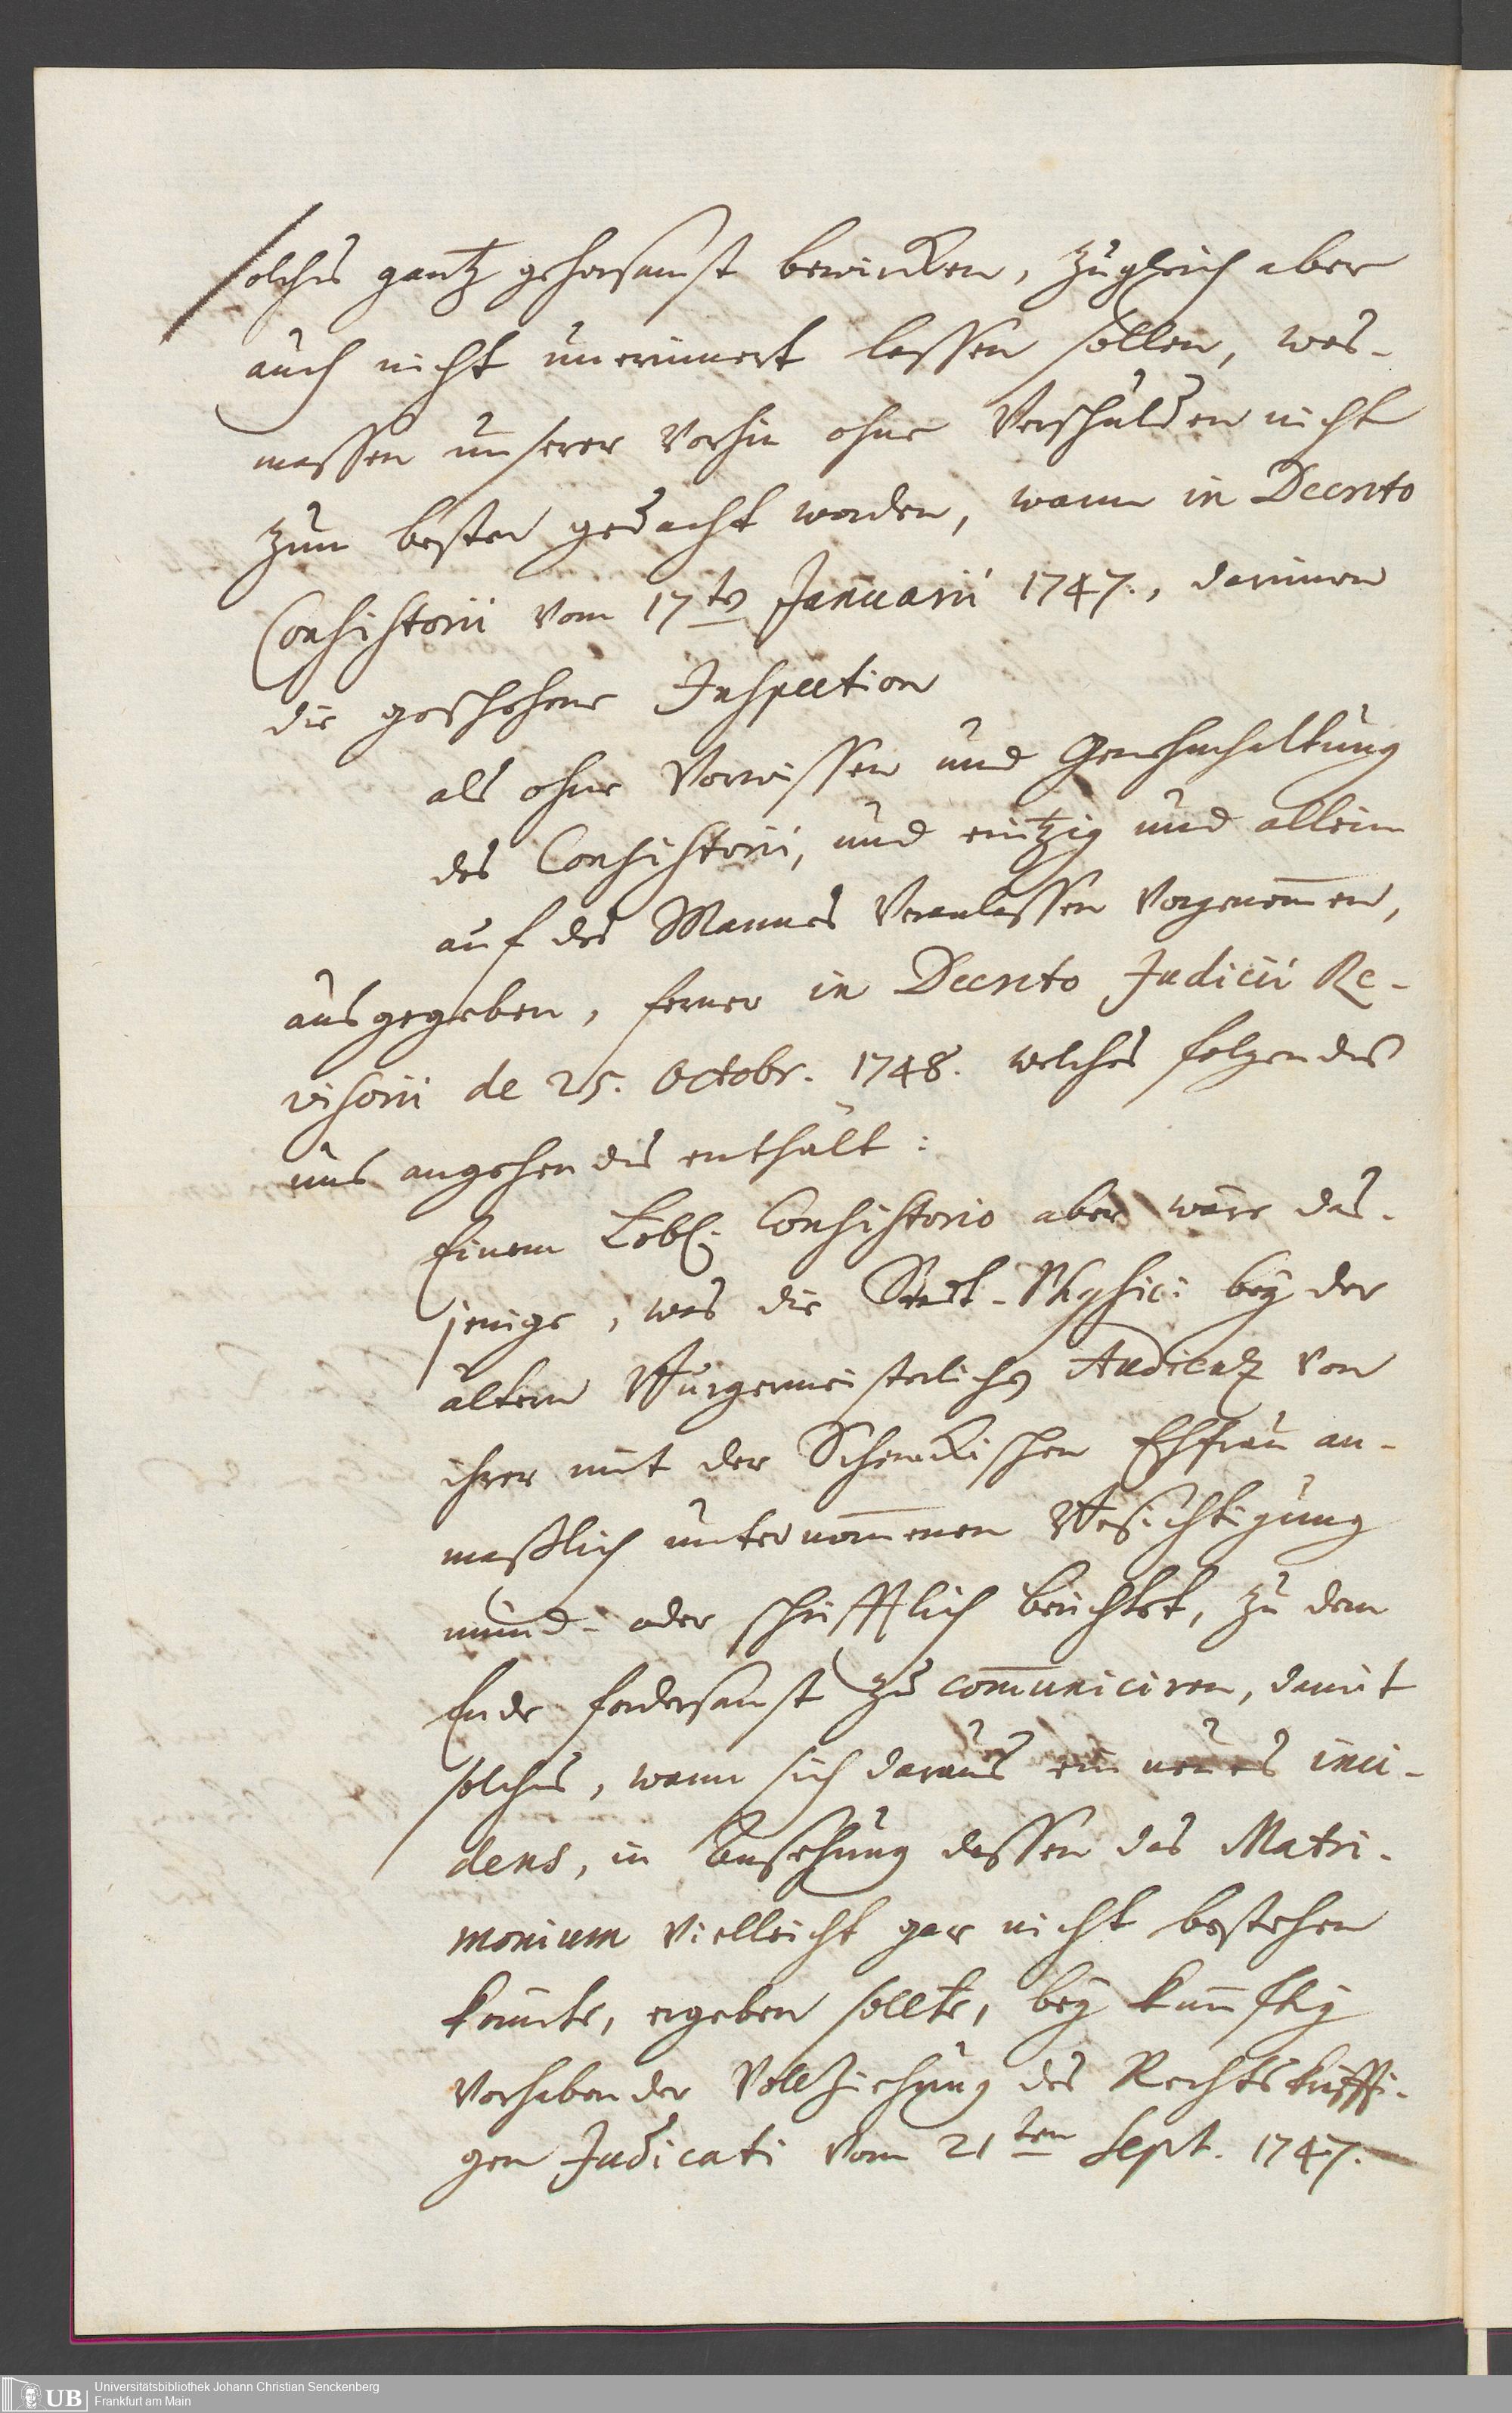 solches gantz gehorsamst bewircken, zugleich aber
auch nicht unerinnert lassen sollen, was-
massen unserer vorhin ohne Verschulden nicht
zum besten gedacht worden, wann in Decreto
Consistorii vom 17ten Januarii 1747., darinnen
die geschehene Inspection
als ohne Vorwissen und Genehmhaltung
des Consistorii, und eintzig und allein
auf des Mannes Veranlassen vorgenom̄en,
ausgegeben, ferner in Decreto Judicii Re-
visorii de 25. Octobr. 1748. welches folgendes
uns angehendes enthält:
Einem Löbl. Consistorio aber wäre das-
jenige, was die Stadt-Physici bey der
ältern Burgermeisterlichen Audienz von
ihrer mit der Schenckischen Ehfrau an-
maßlich unternom̄enen Besichtigung
mund- oder schrifftlich berichtet, zu dem
Ende fordersamst zu com̄uniciren, damit
solches, wann sich daraus ein neues inci-
dens, in Ansehung dessen das Matri-
monium vielleicht gar nicht bestehen
könnte, ergeben sollte, bey künfftig
vorhabender Vollziehung des Rechtskräffti-
gen Judicati vom 21ten Sept. 1747.
UB
Universitätsbibliothek Johann Christian Senckenberg
Frankfurt am Main